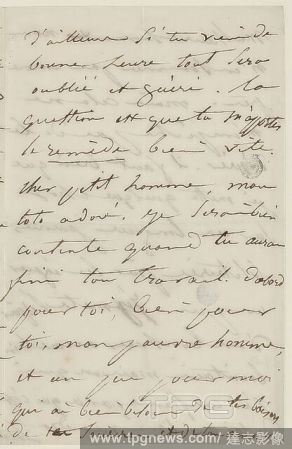 d'ailleurs si tu viens de
bonne heure tout sera
oublié et guéri. La
question est que tu m'apportes
le remède bien vite.
cher petit homme, mon
toto adoré, je serai bien
contente quand tu auras
fini ton travail. D'abord
pour toi, bien pour
toi, mon pauvre homme,
et un peu pour moi
qui ai bien besoin de tes baisers
de
www.tpgnews.com / 達志影像